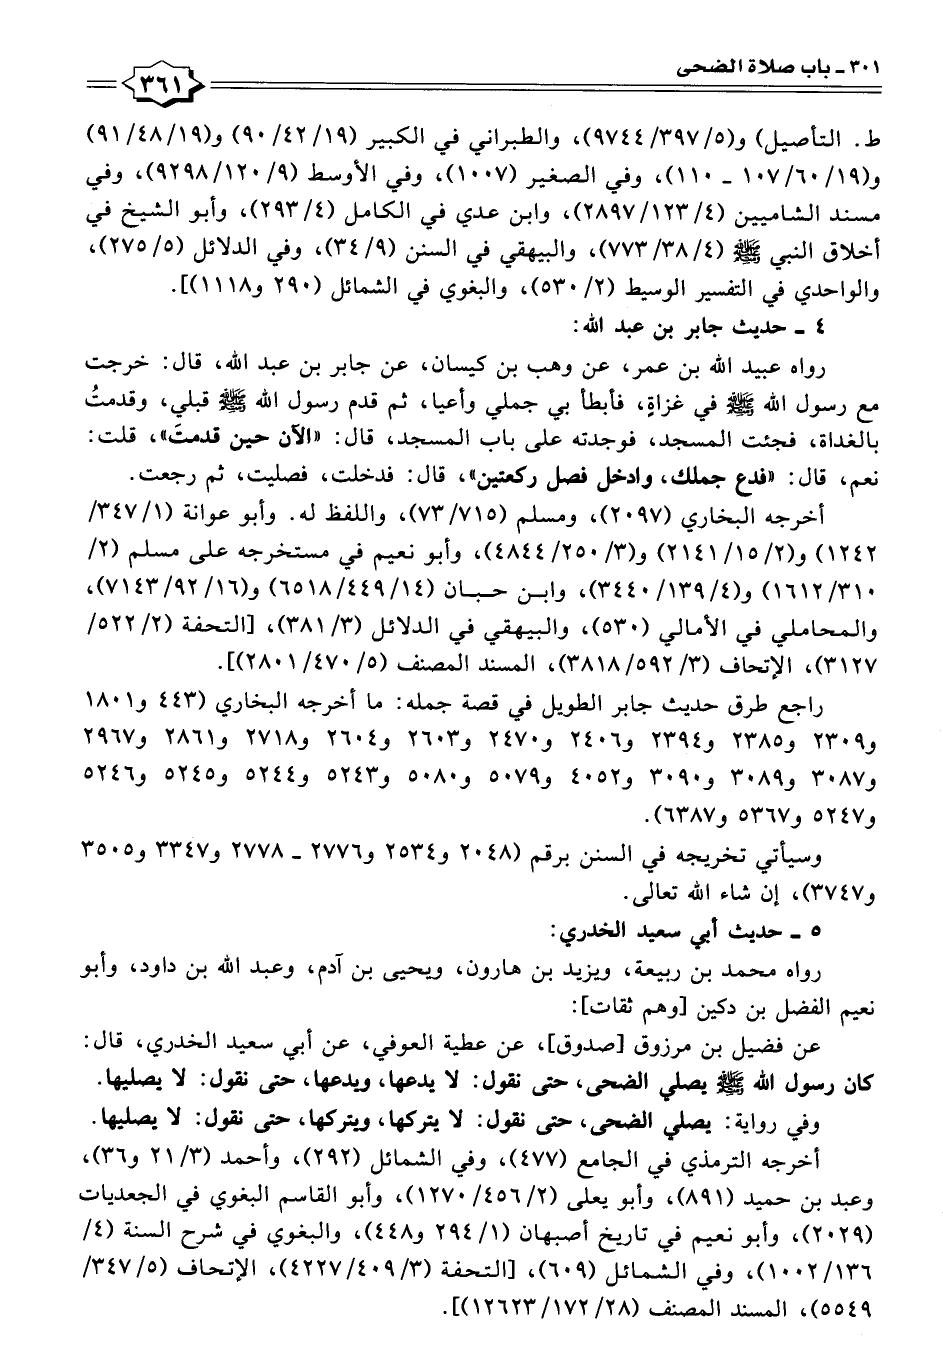 ٣٠١ - باب صلاة الضحى
٣٦١
ط. التأصيل) و(٥/ ٣٩٧/ ٩٧٤٤)، والطبراني في الكبير (١٩/ ٤٢/ ٩٠) و(١٩/ ٤٨/ ٩١)
و(١٩/ ٦٠/ ١٠٧ - ١١٠)، وفي الصغير (١٠٠٧)، وفي الأوسط (٩/ ١٢٠/ ٩٢٩٨)، وفي
مسند الشاميين (٤/ ١٢٣/ ٢٨٩٧)، وابن عدي في الكامل (٤/ ٢٩٣)، وأبو الشيخ في
أخلاق النبي ﷺ (٤/ ٣٨/ ٧٧٣)، والبيهقي في السنن (٩/ ٣٤)، وفي الدلائل (٥/ ٢٧٥)،
والواحدي في التفسير الوسيط (٢/ ٥٣٠)، والبغوي في الشمائل (٢٩٠ و١١١٨)].
٤ - حديث جابر بن عبد الله:
رواه عبيد الله بن عمر، عن وهب بن كيسان، عن جابر بن عبد الله، قال: خرجت
مع رسول الله ﷺ في غزاةٍ، فأبطأ بي جملي وأعيا، ثم قدم رسول الله ﷺ قبلي، وقدمتُ
بالغداة، فجئت المسجد، فوجدته على باب المسجد، قال: «الآن حين قدمتَ»، قلت:
نعم، قال: «فدع جملك، وادخل فصل ركعتين»، قال: فدخلت، فصليت، ثم رجعت.
أخرجه البخاري (٢٠٩٧)، ومسلم (٧١٥/ ٧٣)، واللفظ له. وأبو عوانة (١/ ٣٤٧/
١٢٤٢) و(٢/ ١٥/ ٢١٤١) و(٣/ ٢٥٠/ ٤٨٤٤)، وأبو نعيم في مستخرجه على مسلم (٢/
٣١٠/ ١٦١٢) و(٤/ ١٣٩/ ٣٤٤٠)، وابن حبان (١٤/ ٤٤٩/ ٦٥١٨) و(١٦/ ٩٢/ ٧١٤٣)،
والمحاملي في الأمالي (٥٣٠)، والبيهقي في الدلائل (٣/ ٣٨١)، [التحفة (٢/ ٥٢٢/
٣١٢٧)، الإتحاف (٣/ ٥٩٢/ ٣٨١٨)، المسند المصنف (٥/ ٤٧٠/ ٢٨٠١)].
راجع طرق حديث جابر الطويل في قصة جمله: ما أخرجه البخاري (٤٤٣ و١٨٠١
و٢٣٠٩ و٢٣٨٥ و٢٣٩٤ و٢٤٠٦ و٢٤٧٠ و٢٦٠٣ و٢٦٠٤ و٢٧١٨ و٢٨٦١ و٢٩٦٧
و٣٠٨٧ و٣٠٨٩ و٣٠٩٠ و٤٠٥٢ و٥٠٧٩ و٥٠٨٠ و٥٢٤٣ و٥٢٤٤ و٥٢٤٥ و٥٢٤٦
و٥٢٤٧ و٥٣٦٧ و٦٣٨٧).
وسيأتي تخريجه في السنن برقم (٢٠٤٨ و٢٥٣٤ و٢٧٧٦ - ٢٧٧٨ و٣٣٤٧ و٣٥٠٥
و٣٧٤٧)، إن شاء الله تعالى.
٥ - حديث أبي سعيد الخدري:
رواه محمد بن ربيعة، ويزيد بن هارون، ويحيى بن آدم، وعبد الله بن داود، وأبو
نعيم الفضل بن دكين [وهم ثقات]:
عن فضيل بن مرزوق [صدوق]، عن عطية العوفي، عن أبي سعيد الخدري، قال:
كان رسول الله ﷺ يصلي الضحى، حتى نقول: لا يدعها، ويدعها، حتى نقول: لا يصليها.
وفي رواية: يصلي الضحى، حتى نقول: لا يتركها، ويتركها، حتى نقول: لا يصليها.
أخرجه الترمذي في الجامع (٤٧٧)، وفي الشمائل (٢٩٢)، وأحمد (٣/ ٢١ و٣٦)،
وعبد بن حميد (٨٩١)، وأبو يعلى (٢/ ٤٥٦/ ١٢٧٠)، وأبو القاسم البغوي في الجعديات
(٢٠٢٩)، وأبو نعيم في تاريخ أصبهان (١/ ٢٩٤ و٤٤٨)، والبغوي في شرح السنة (٤/
١٣٦/ ١٠٠٢)، وفي الشمائل (٦٠٩)، [التحفة (٣/ ٤٠٩/ ٤٢٢٧)، الإتحاف (٥/ ٣٤٧/
٥٥٤٩)، المسند المصنف (٢٨/ ١٧٢/ ١٢٦٢٣)].